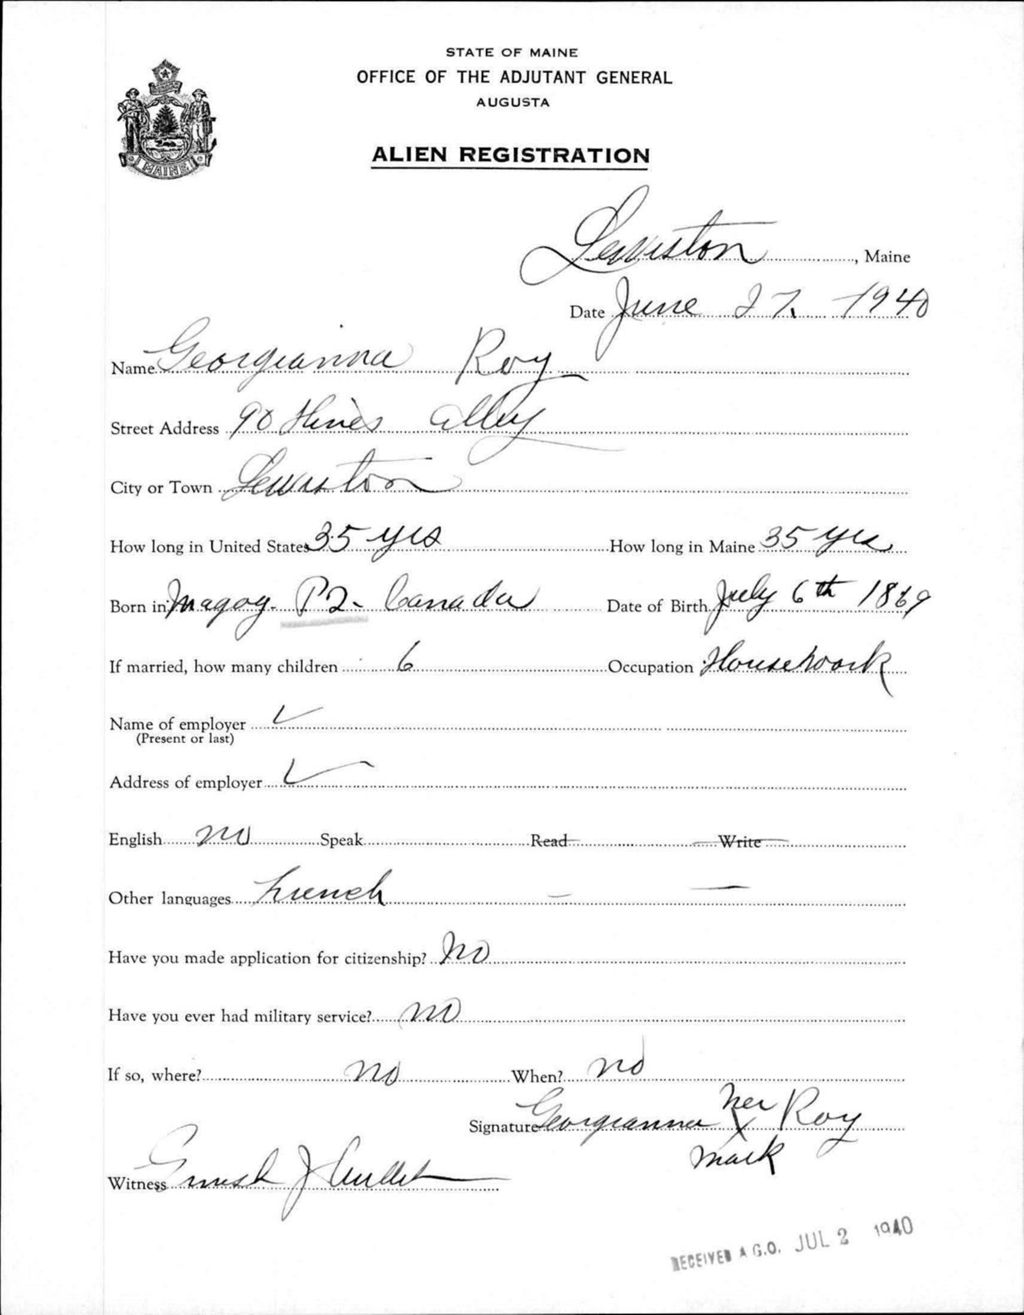 STATE OF MAINE
OFFICE OF THE ADJUTANT GENERAL
AUGUSTA
ALIEN REGISTRATION
MAINE
Lewiston, Maine
Date June 27, 1940
Name Georgianna Roy
Street Address 90 Hines Alley
City or Town Lewiston
How long in United States 35 yrs How long in Maine 35 yrs
Born in Magog P2. Canada Date of Birth July 6th 1869
If married, how many children 6 Occupation Housework
Name of employer ✓
(Present or last)
Address of employer ✓
English no Speak Read Write
Other languages French – –
Have you made application for citizenship? No
Have you ever had military service? no
If so, where? no When? no
Signature Georgianna her X mark Roy
Witness J
RECEIVED A.G.O. JUL 2 1940